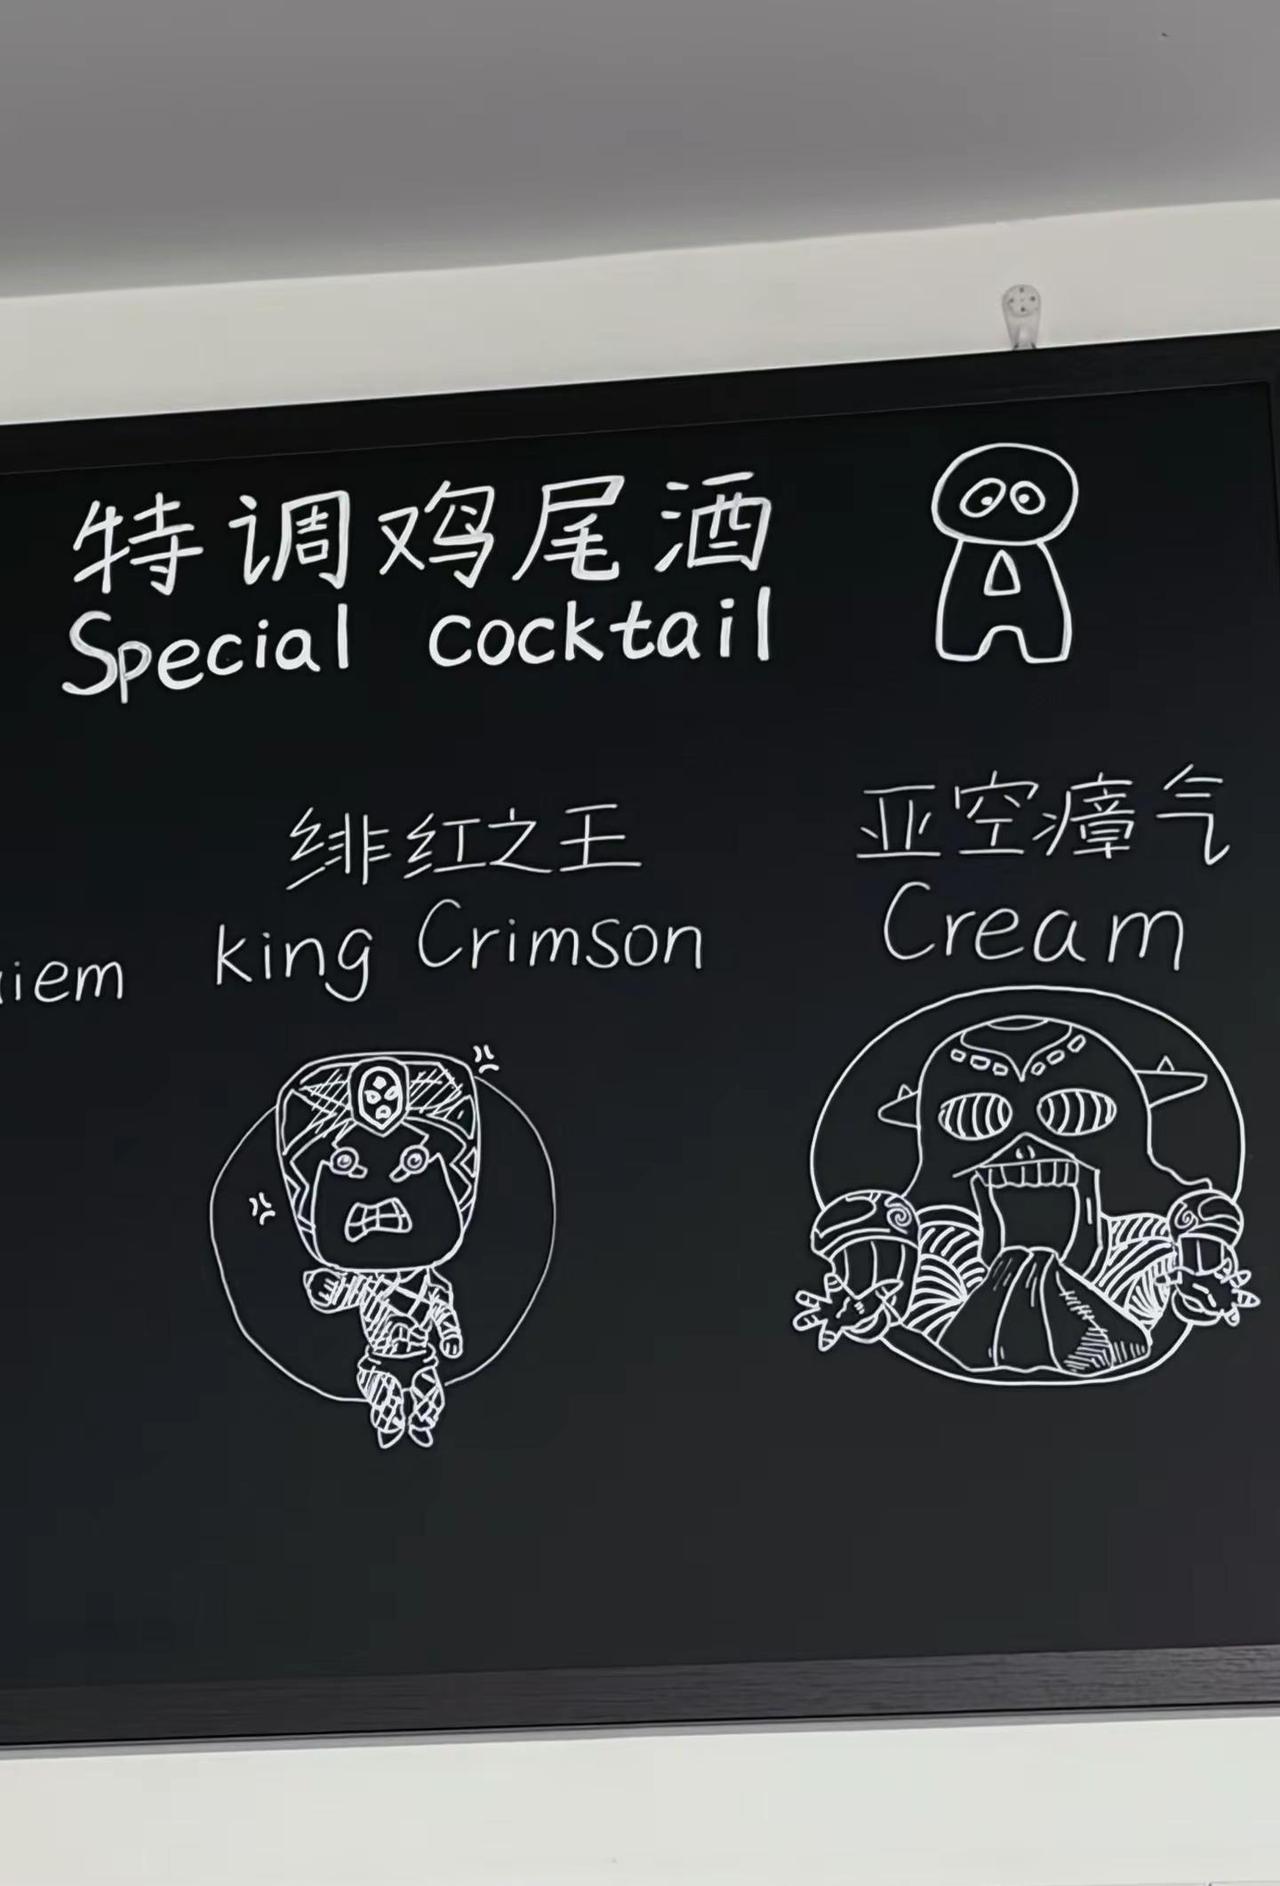 特调鸡尾酒
Special cocktail
绯红之王
king Crimson
亚空瘴气
Cream
iem